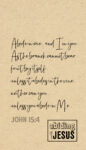 Abide in me and I in you
As the branch cannot bear
fruit by itself
unless it abides in the vine
neither can you
unless you abide in Me.
JOHN 15:4
abiding
JESUS